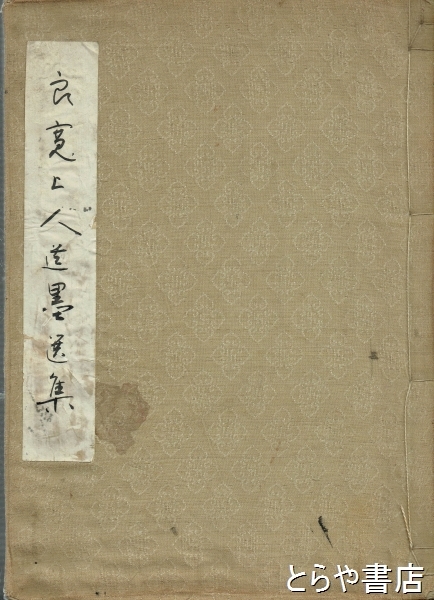 良寛上人遺墨選集
とらや書店